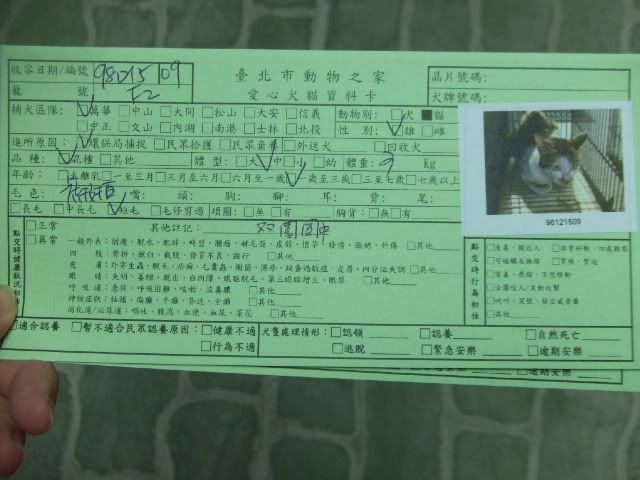 收容日期/編號 981215 09 臺北市動物之家 晶片號碼:
籠號 F2 愛心犬貓資料卡 犬牌號碼:
捕犬區隊: 萬華 □中山 □大同 □松山 □大安 □信義 動物別: □犬 ■貓
□中正 □文山 □內湖 □南港 □士林 □北投 性別: 雄 □雌
進所原因: 環保局捕捉 □民眾拾獲 □民眾棄養 □外送犬 □回收犬
品種: 混種 □其他 體型: □大 中 □小 □幼 體重: Kg
年齡: □未離乳 □一至三月 □三月至六月 □六月至一歲 一歲至三歲 □三至七歲 □七歲以上
毛色: 嘴: 頭: 胸: 腳: 耳: 背: 尾:
□長毛 □中長毛 短毛 □毛修剪過 項圈: □無 □有 胸背: □無 □有
98121509
點交時健康狀況初估
□正常 其他註記: 雙園國中
□異常 一般外表: 消瘦、脫水、肥胖、畸型、腫瘤、赫尼亞、虛弱、懷孕、發情、脹奶、外傷 □其他
四肢: 骨折、脫臼、截肢、發育不良、跛行 □其他
皮膚: 外寄生蟲、脫毛、疥癬、毛囊蟲、黴菌、濕疹、跳蚤過敏症、皮屑、內分泌失調 □其他
眼睛: 失明、萎縮、脫出、白內障、眼瞼脫毛、第三眼瞼增生、眼屎 □其他
呼吸道: 急促、呼吸困難、咳嗽、流鼻膿 □其他
神經症狀: 抽搐、偏癱、半癱、昏迷、全癱 □其他
消化道/泌尿道: 嘔吐、腹瀉、血便、血尿、尿花 □其他
點交時行為初估
□友善、親近人 □非常好動、四處跑跳
□可碰觸及撫摸 □緊張、警戒
□害羞、畏縮、不想移動
□企圖咬人/主動攻擊
□吠叫、哭號、發出威脅聲
□其他
□適合認養 □暫不適合民眾認養原因: □健康不適 犬隻處理情形: □認領 □認養 □自然死亡
□行為不適 □逃脫 □緊急安樂 □逾期安樂
□逃脫 □緊急安樂 □逾期安樂